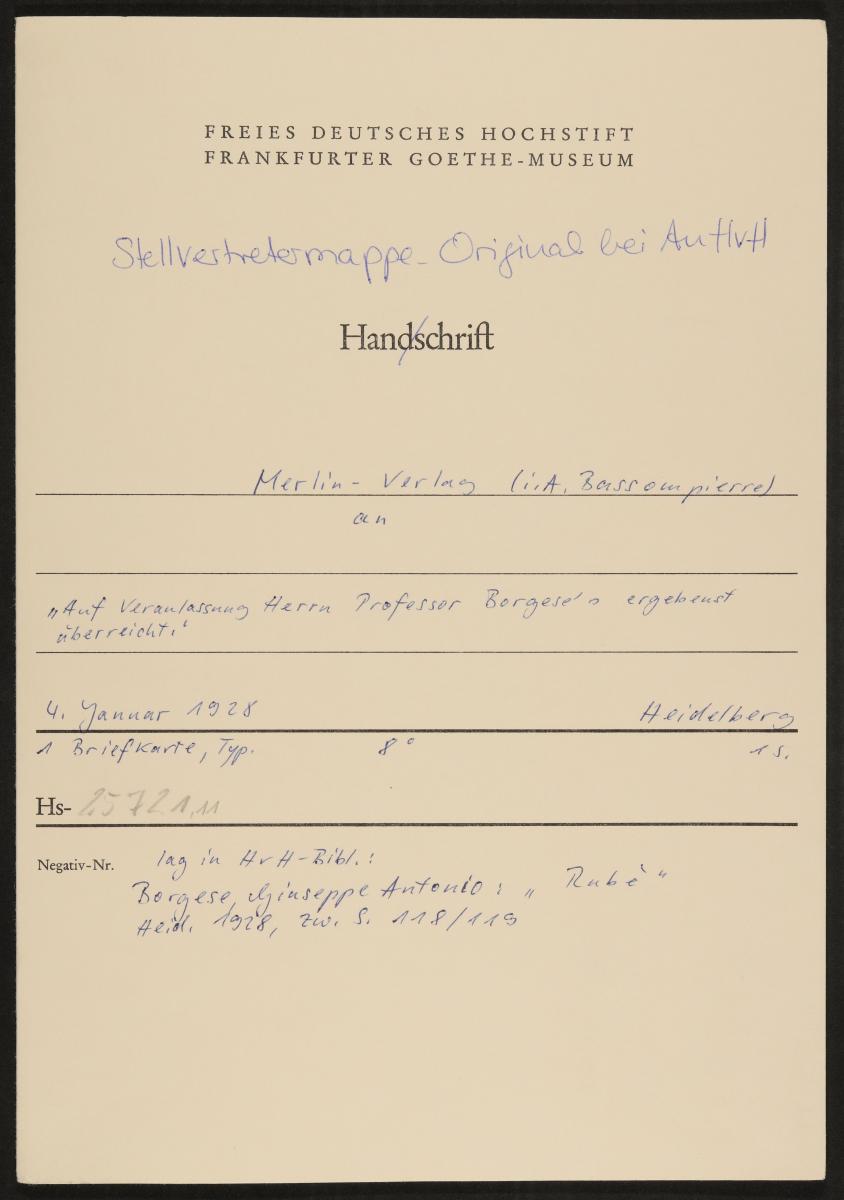 FREIES DEUTSCHES HOCHSTIFT
FRANKFURTER GOETHE-MUSEUM
Stellvertretermappe - Original bei An HvH
Handschrift
Merlin-Verlag (i.A. Bassompierre)
an
„Auf Veranlassung Herrn Professor Borgese's ergebenst
überreicht."
4. Januar 1928 Heidelberg
1 Briefkarte, Typ. 8° 1 S.
Hs- 25721,11
Negativ-Nr. lag in HvH-Bibl.:
Borgese, Giuseppe Antonio: „Rubè"
Heid. 1928, zw. S. 118/119